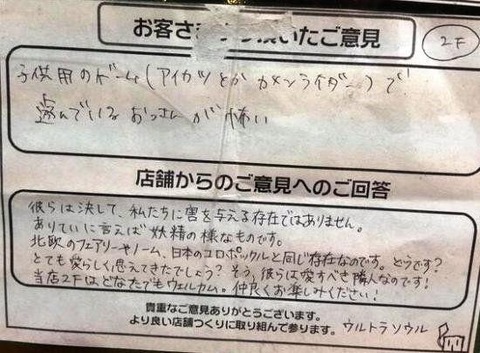 お客さまから頂いたご意見
2F
子供用のゲーム(アイカツとかカメンライダー)で
遊んでいるおっさんが怖い
店舗からのご意見へのご回答
彼らは決して、私たちに害を与える存在ではありません。
ありていに言えば妖精の様なものです。
北欧のフェアリーやノーム、日本のコロポックルと同じ存在なのです。どうです?
とても愛らしく思えてきたでしょう?そう、彼らは愛すべき隣人なのです!
当店2Fはどなたでもウェルカム。仲良くお楽しみください!
貴重なご意見ありがとうございます。
より良い店舗つくりに取り組んで参ります。 ウルトラソウル